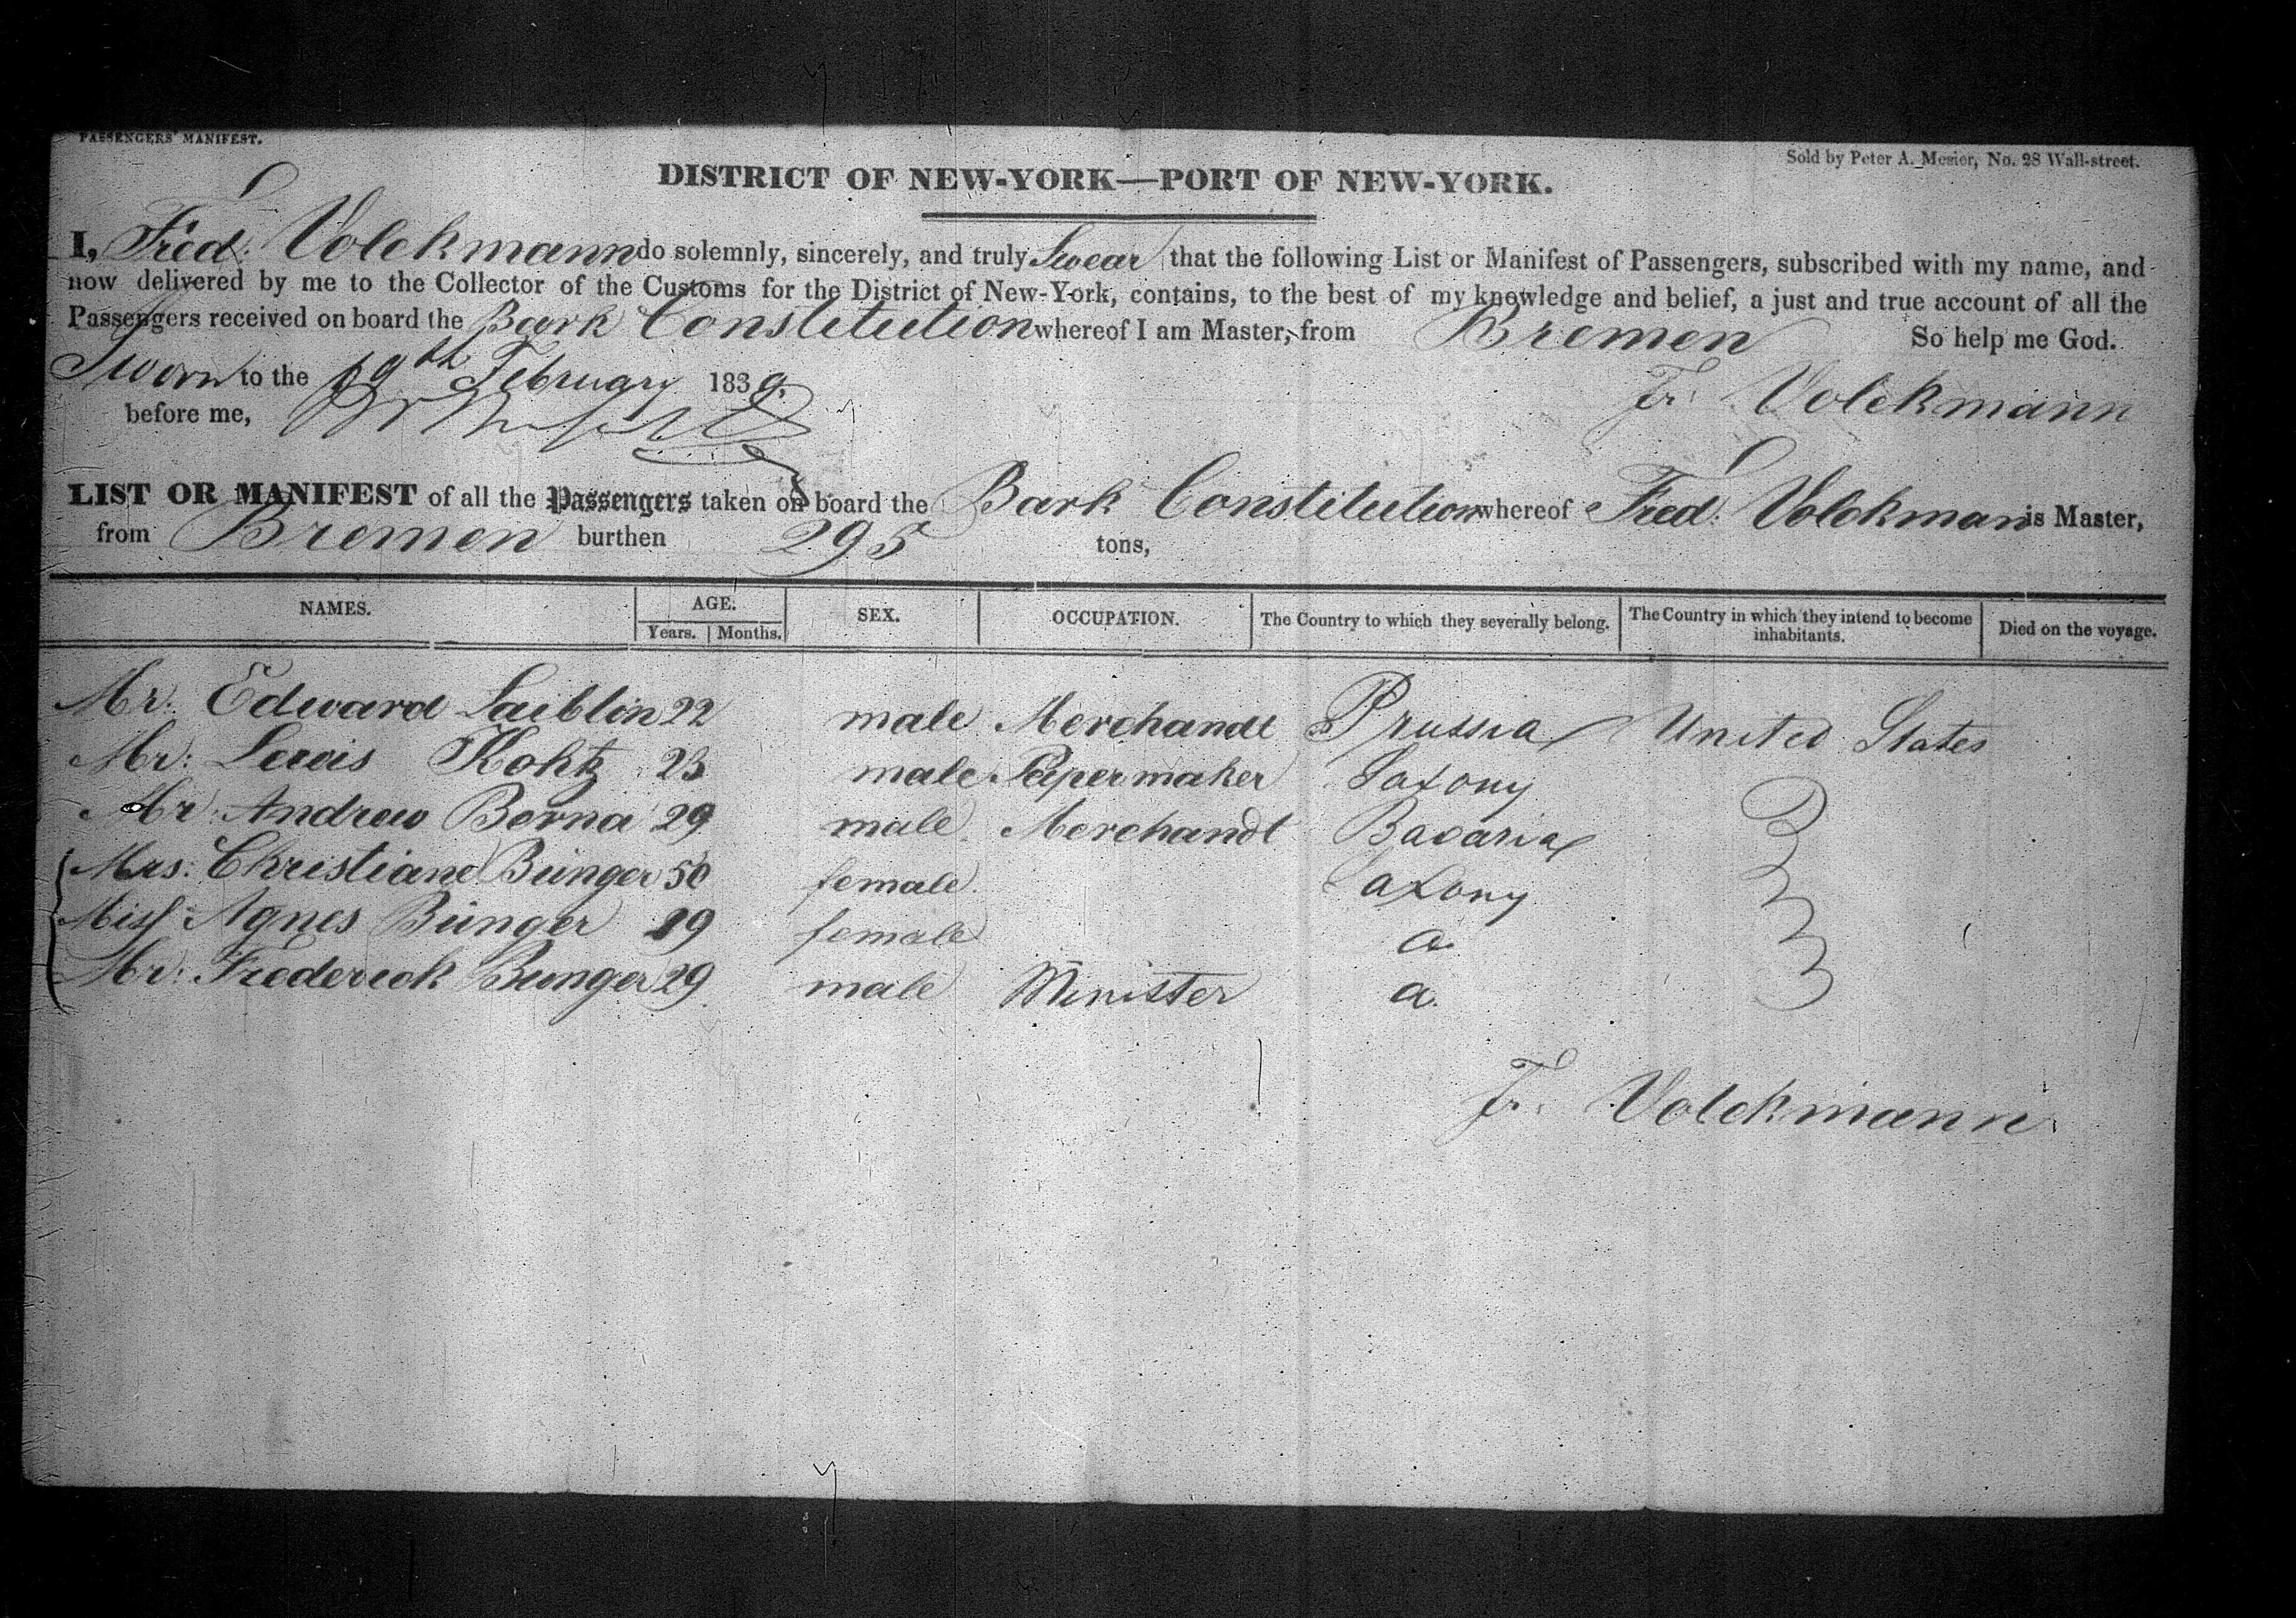 PASSENGERS' MANIFEST.
Sold by Peter A. Mesier, No. 28 Wall-street.
DISTRICT OF NEW-YORK—PORT OF NEW-YORK.
I, Fred: Volckmann do solemnly, sincerely, and truly Swear that the following List or Manifest of Passengers, subscribed with my name, and
now delivered by me to the Collector of the Customs for the District of New-York, contains, to the best of my knowledge and belief, a just and true account of all the
Passengers received on board the Bark Constitution whereof I am Master, from Bremen So help me God.
Sworn to the 19th February 1839.
before me,
Fr. Volckmann
LIST OR MANIFEST of all the Passengers taken on board the Bark Constitution whereof Fred: Volckmann is Master,
from Bremen burthen 295 tons,
NAMES. AGE. SEX. OCCUPATION. The Country to which they severally belong. The Country in which they intend to become inhabitants. Died on the voyage.
Years. Months.
Mr: Edward Laiblin 22 male Merchandt Prussia United States
Mr: Lewis Kohtz 23 male Papermaker Saxony
Mr: Andrew Berna 29 male Merchandt Bavaria
Mrs: Christiane Bünger 50 female axony
Miss Agnes Bünger 19 female a
Mr: Frederick Bunger 29 male Minister a.
Fr. Volckmann.